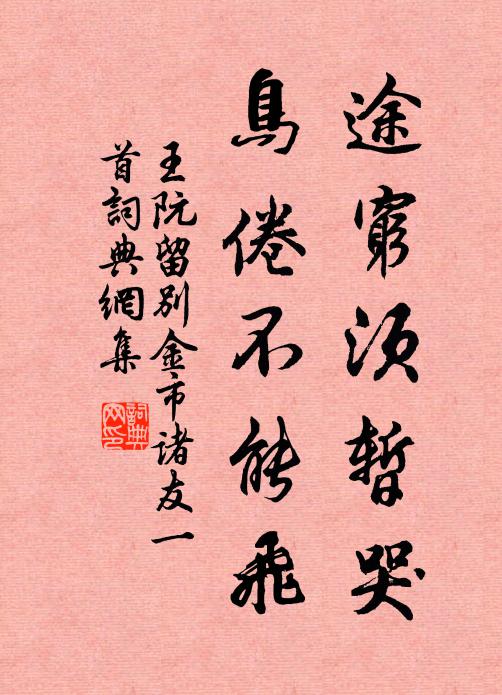 途窮須暫哭
鳥倦不能飛
王阮留別金市诸友一
首詞典網集
詞典
网印